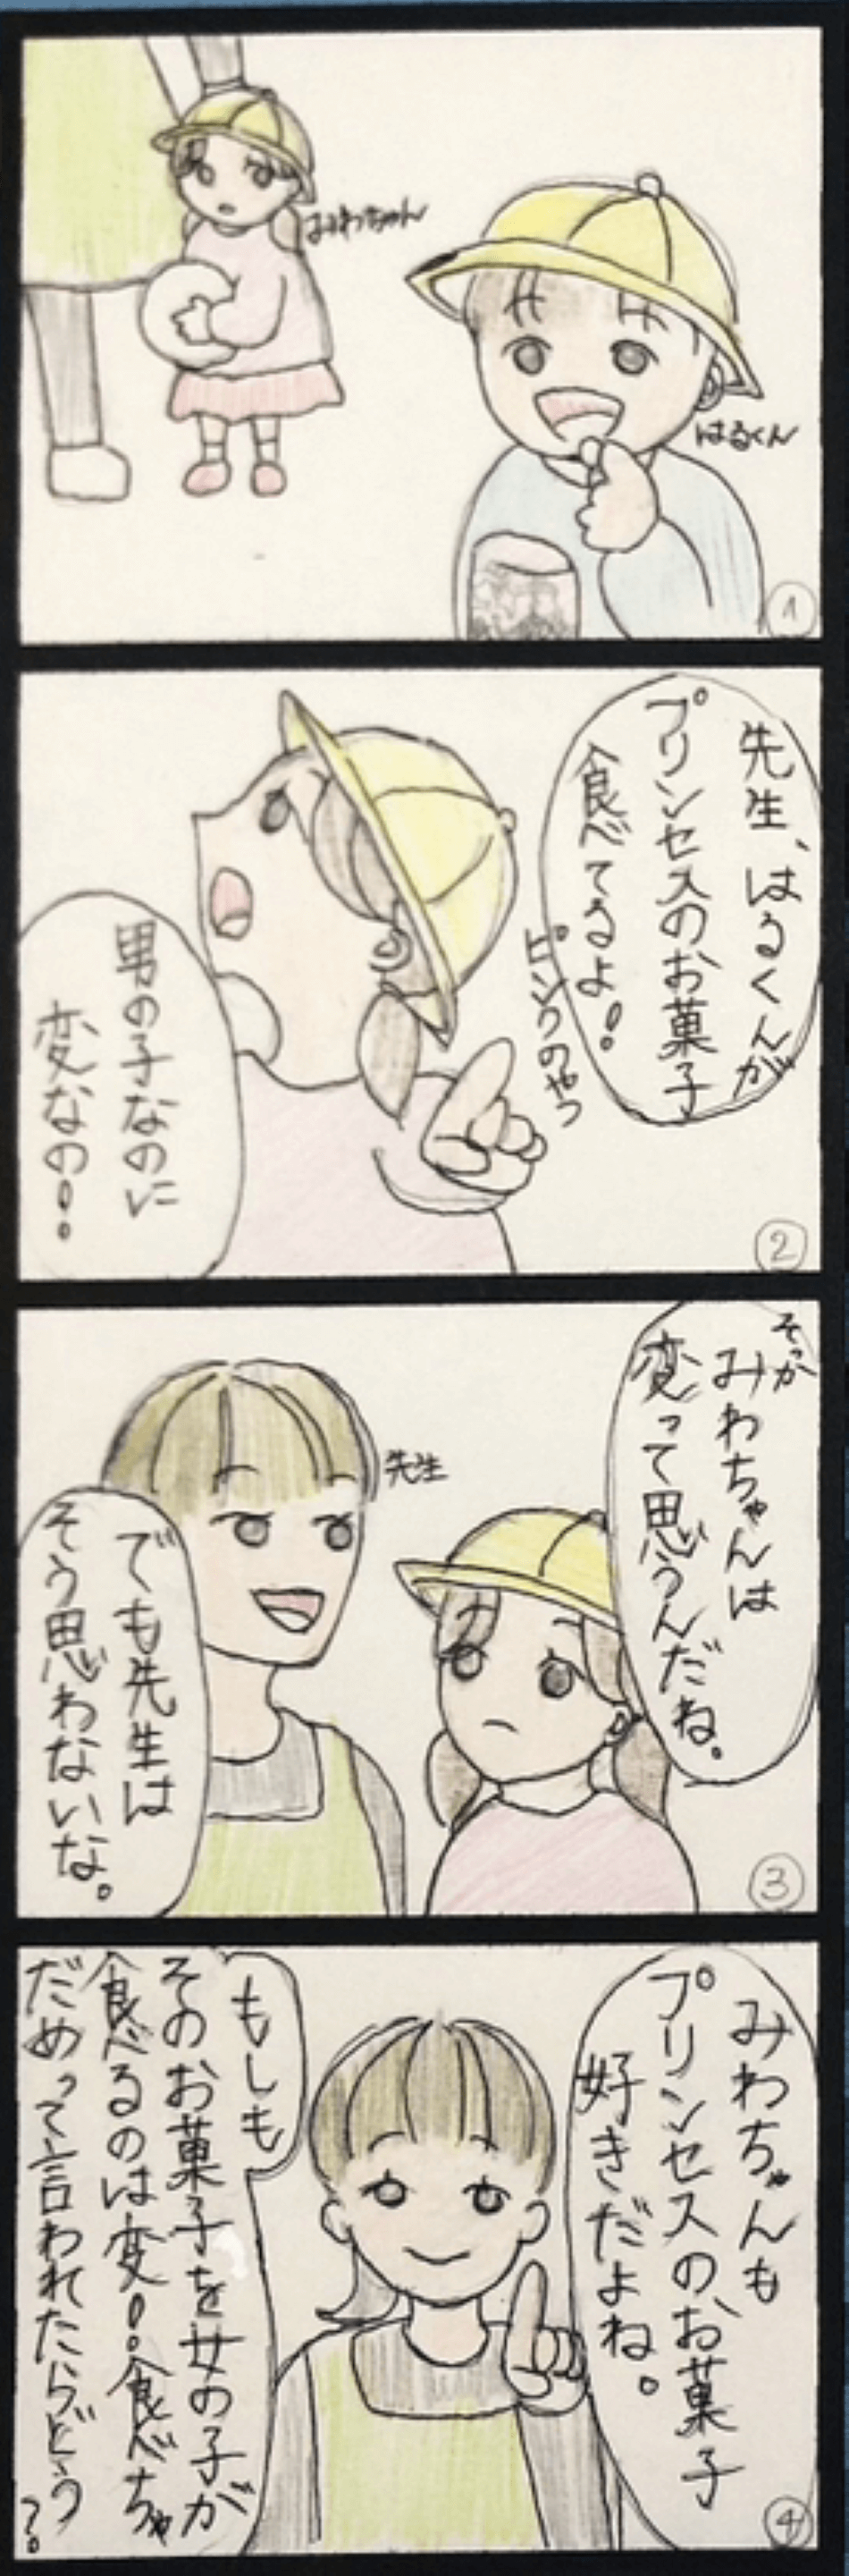 みわちゃん
はるくん
1
先生、はるくんが
プリンセスのお菓子
食べてるよ！
ピンクのやつ
男の子なのに
変なの！
2
そっか
みわちゃんは
変って思うんだね。
先生
でも先生は
そう思わないな。
3
みわちゃんも
プリンセスのお菓子
好きだよね。
もしも
そのお菓子を女の子が
食べるのは変！食べちゃ
だめって言われたらどう？
4